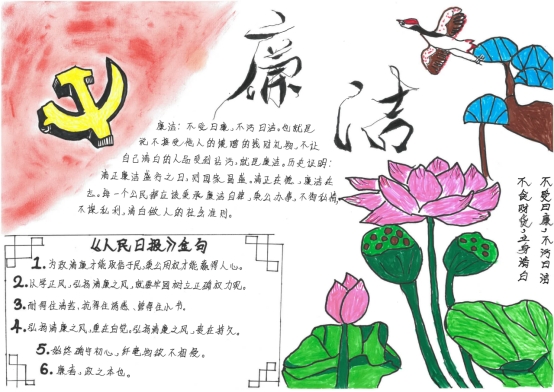 廉洁
廉洁:不受曰廉,不污曰洁。也就是
说不接受他人的馈赠的钱财礼物,不让
自己清白的人品受到玷污,就是廉洁。历史证明:
清正廉洁盛行之日,则国家昌盛。清正在德,廉洁在
志。每一个公民都应该秉承廉洁自律,秉公办事,不徇私情,
不谋私利,清白做人的社会准则。
不受曰廉,不污曰洁
不贪财货,立身清白
《人民日报》金句
1.为政清廉才能取信于民,秉公用权才能赢得人心。
2.以学正风,弘扬清廉之风,就要牢固树立正确权力观。
3.耐得住清苦,抗得住诱惑、管得住小节。
4.弘扬清廉之风,重在自觉,弘扬清廉之风,贵在持久。
5.始终确守初心,纤毫物欲不相侵。
6.廉者,政之本也。